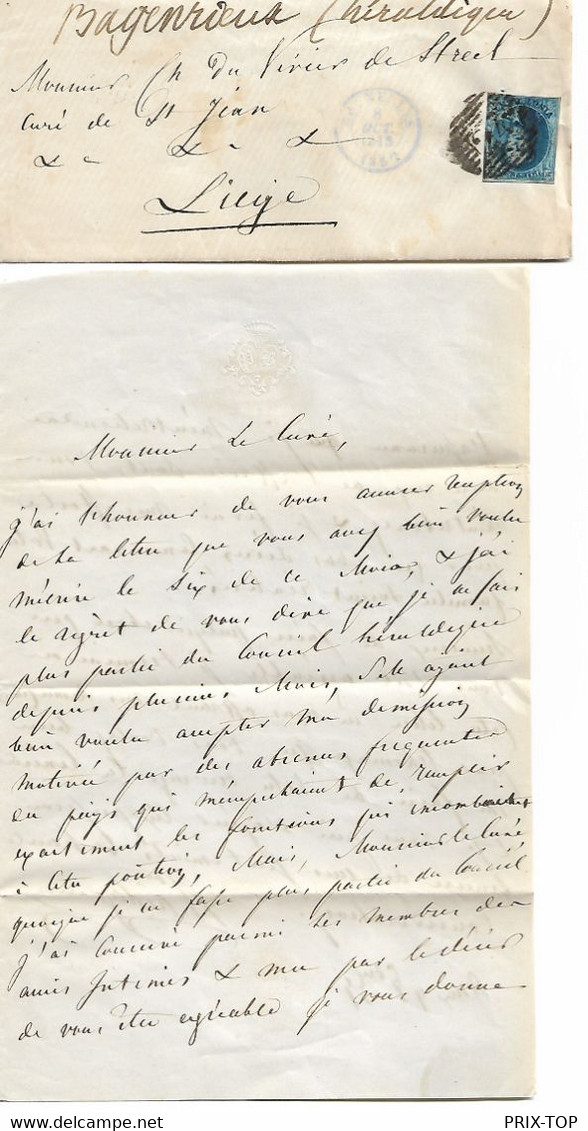 Bagenrieux (héraldique)
Monsieur Ch du Vivier de Streel
Curé de St Jean
Liége
Monsieur Le Curé,
j'ai l'honneur de vous accuser reception
de la lettre que vous avez bien voulu
m'écrire le Six de ce Mois, & j'ai
le regret de vous dire que je ne fais
plus partie du Conseil héraldique
depuis plusieurs Mois, S. M. ayant
bien voulu accepter ma demission
motivée par des absences frequentes
du pays qui m'empechaient de remplir
exactement les fonctions qui incombaient
à cette position, Mais, Monsieur le Curé
quoique je ne fasse plus partie du Conseil
j'ai conservé parmi ses membres des
amis Intimes & mu par le désir
de vous être agréable je vous donne
PRIX-TOP